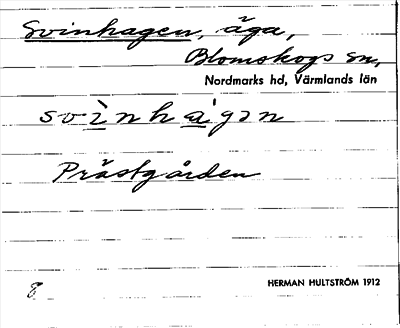 Svinhagen, äga,
Blomskogs sn,
Nordmarks hd, Värmlands län
svìnhágən
Prästgården
HERMAN HULTSTRÖM 1912